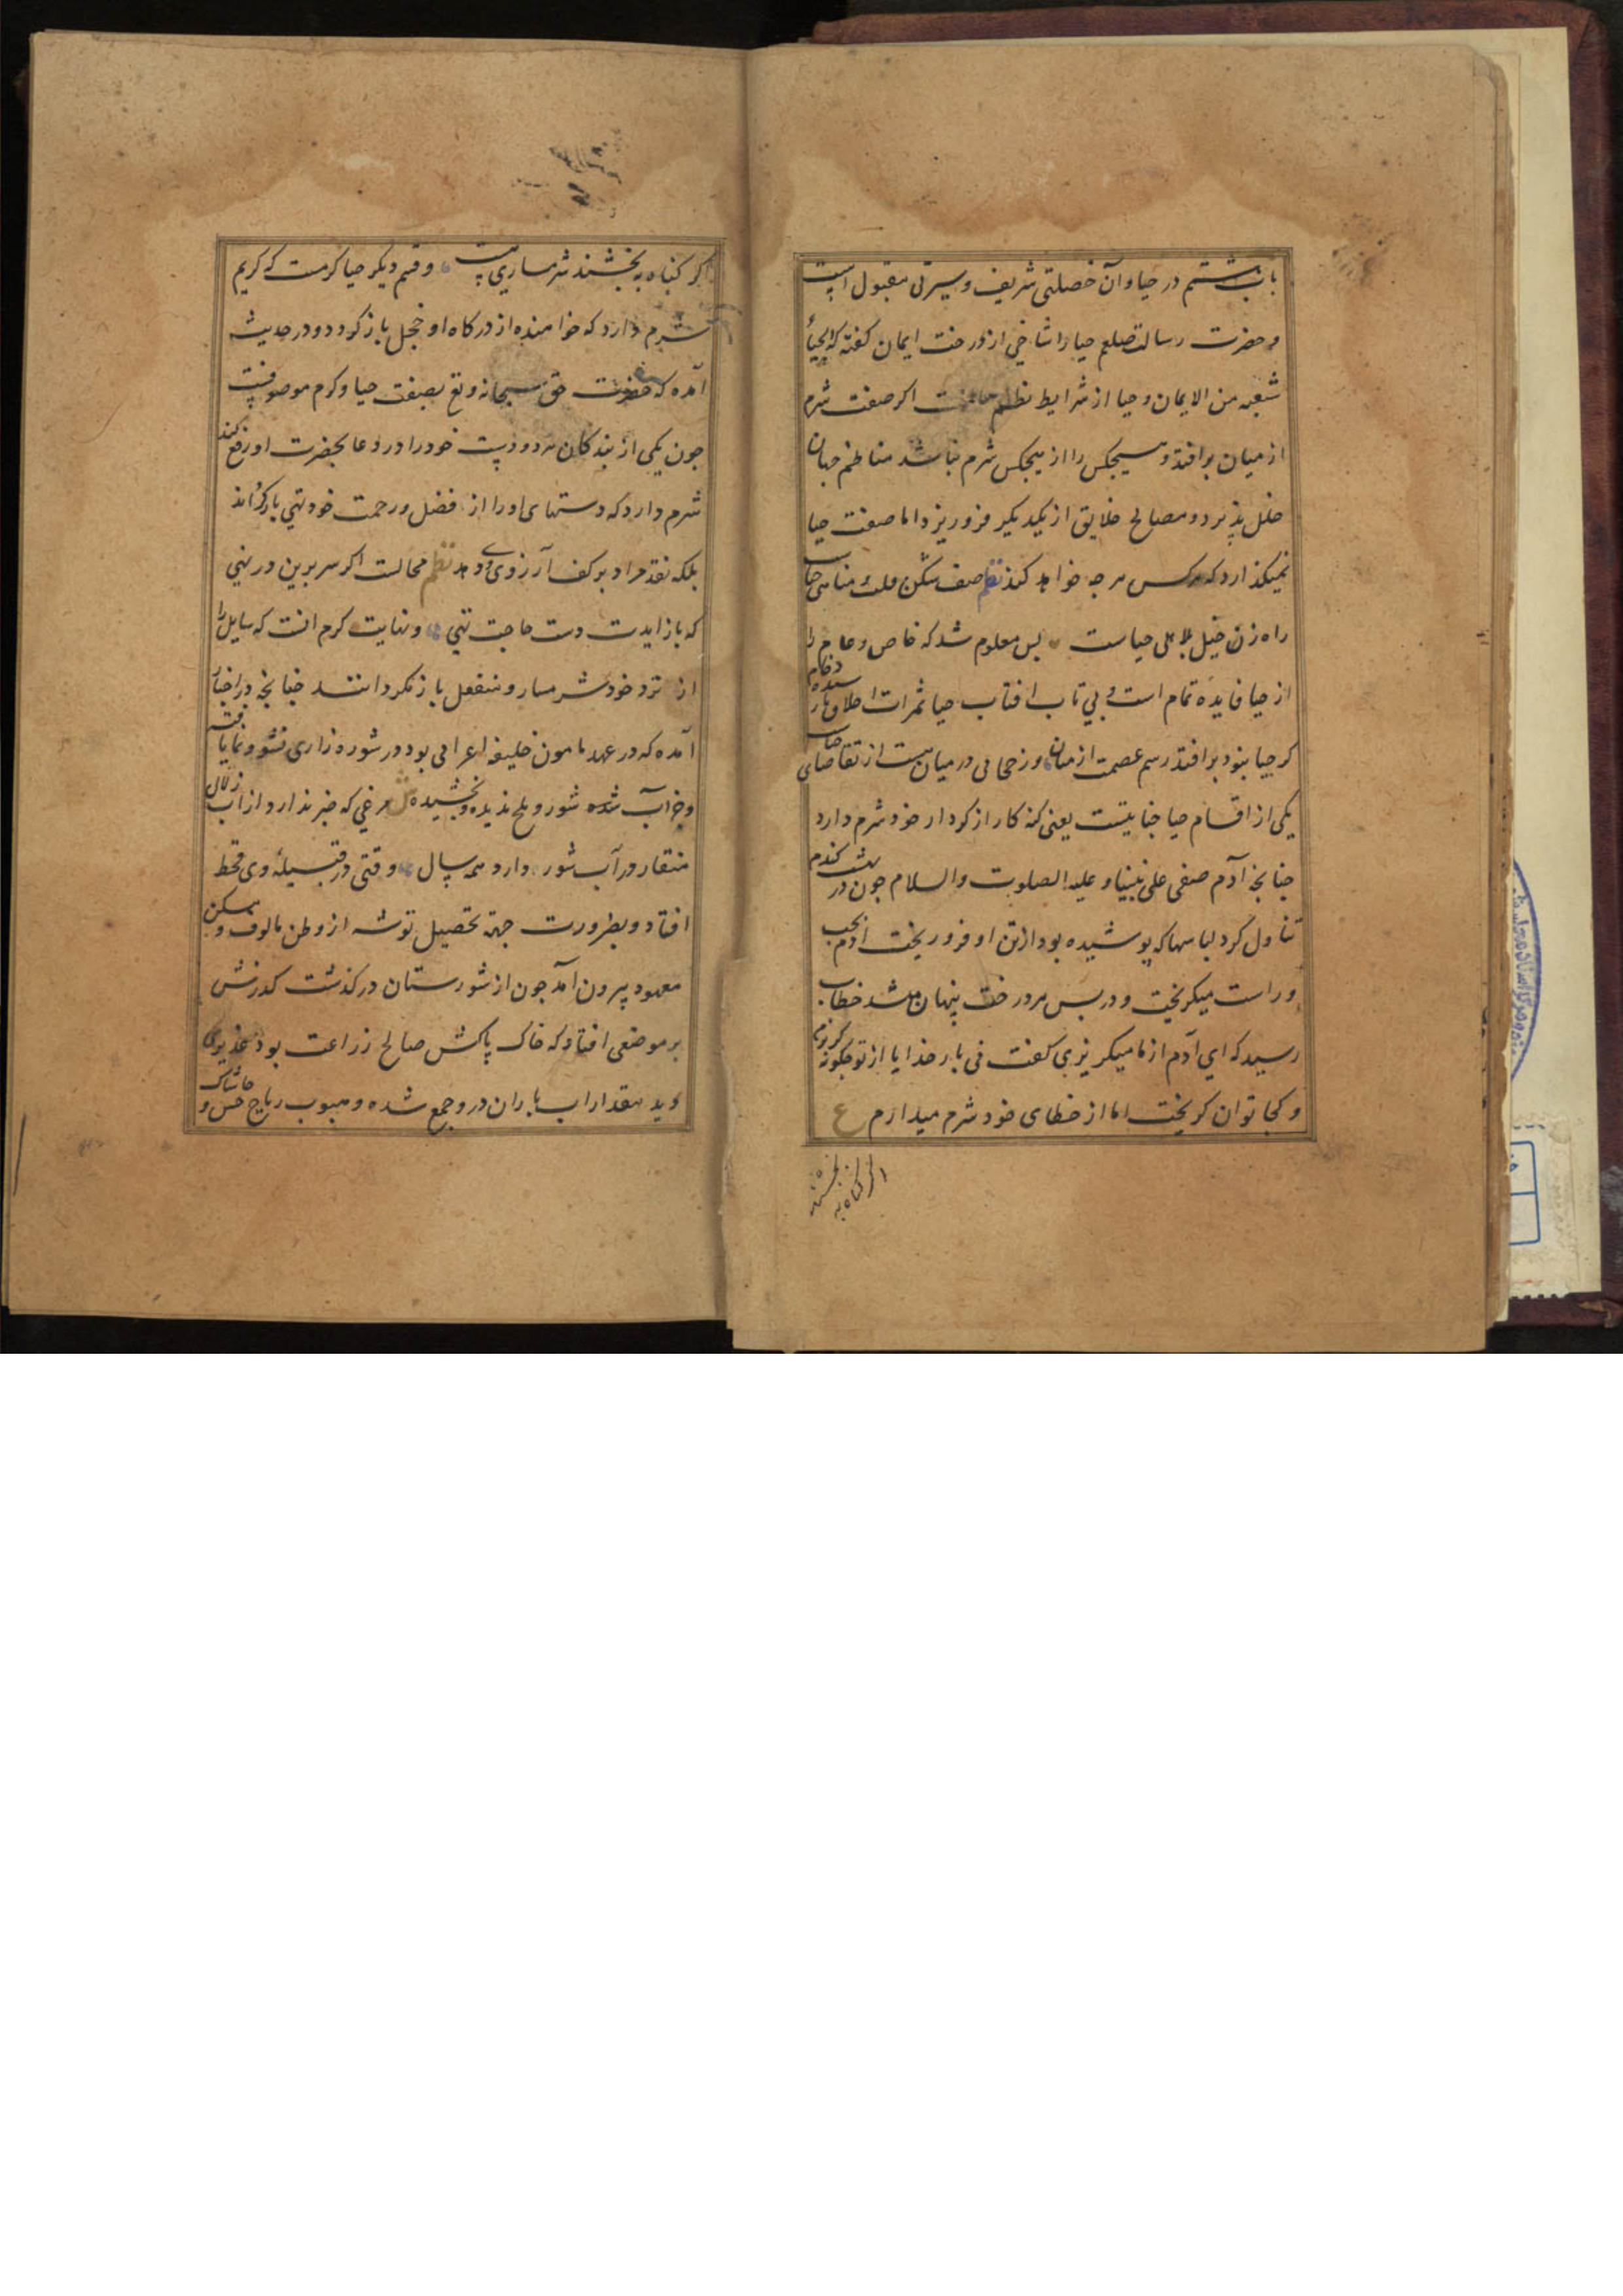 باب هشتم در حیا و آن خصلتی شریف و سیرتی مقبول است
و حضرت رسالت صلعم حیا را شاخی از درخت ایمان کفته که الحیاء
شعبه من الایمان و حیا از شرایط نظم عالمست اکر صفت شرم
از میان بر افتد و هیچکس را از هیچکس شرم نباشد مناظم جهان
خلل پذیرد و مصالح خلایق از یکدیکر فرو ریزد اما صفت حیا
نمیکذارد که هرکس هر چه خواهد کند نظم صف شکن ملک مناهی حیاست
راه زن خیل ملاهی حیاست پس معلوم شد که خاص و عام را
از حیا فایده تمام است و بی تاب افتاب حیا ثمرات اخلاق نارسیده و خام
کر حیا نبود بر افتد رسم عصمت از میان ور حجابی در میان هست از تقاضای حیاست
یکی از اقسام حیا جنایتست یعنی کنه کار از کردار خود شرم دارد
چنانچه آدم صفی علی نبینا و علیه الصلوت والسلام جون در بهشت کندم
تناول کرد لباسها که پوشیده بود از تن او فرو ریخت ادم بچپ
و راست میکریخت و در پس هر درخت پنهان میشد خطاب
رسید که ای آدم از ما میکریزی کفت نی بار خدایا از تو چکونه کریزم
و کجا توان کریخت اما از خطای خود شرم میدارم ع
اکر کناه ببخشند
کر کناه ببخشند شرمساری هست و قسم دیکر حیا کرمست که کریم
شرم دارد که خواهنده از درکاه او خجل باز کردد و در حدیث
آمده که حضرت حق سبحانه و تع بصفت حیا و کرم موصوفست
جون یکی از بندکان هر دو دست خود را در دعا بحضرت او رفع کند
شرم دارد که دستهای او را از فضل و رحمت خود تهی باز کرداند
بلکه نقد مراد بر کف آرزوی وی دهد نظم محالست اکر سر برین در نهی
که باز ایدت دست حاجت تهی و نهایت کرم انست که سایل را
از نزد خود شرمسار و منفعل باز نکردانند چنانچه در اخبار
آمده که در عهد مامون خلیفه اعرابی بود در شوره زاری نشو و نما یافته
و جز آب شور و تلخ ندیده و نچشیده مرغی که خبر ندارد از آب زلال
منقار در آب شور دارد همه سال وقتی در قبیله وی قحط
افتاد و بضرورت جهة تحصیل توشه از وطن مالوف و مسکن
معهود بیرون آمد جون از شورستان در کذشت کذرش
بر موضعی افتاد که خاک پاکش صالح زراعت بود غدیری
دید مقدار اب باران در و جمع شده و هبوب ریاح خس و خاشاک